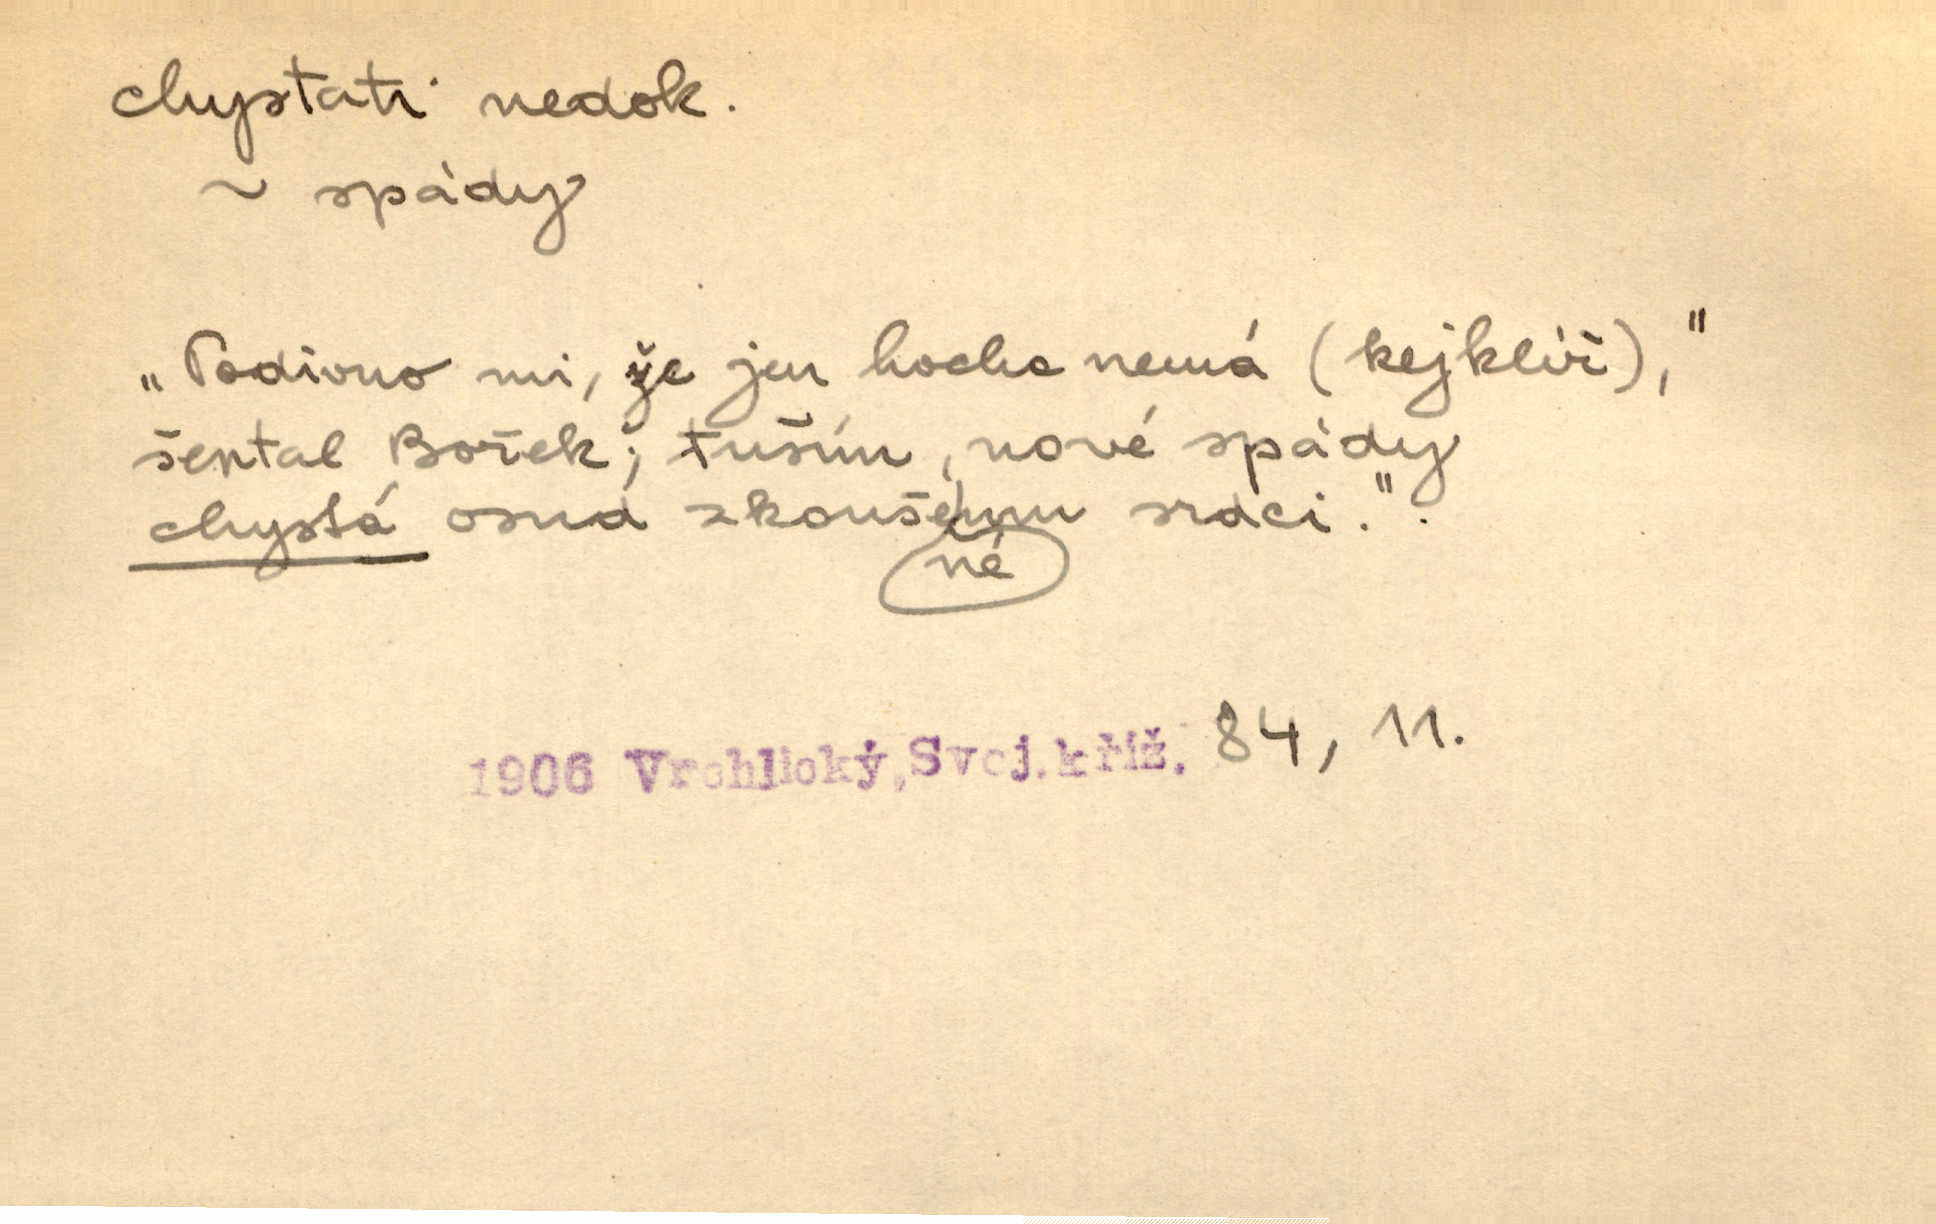 chystati nedok.
~ spády
„Podivno mi, že jen hocha nemá (kejklíř),"
šeptal Bořek; tuším, nové spády
chystá osud zkoušenému srdci.".
né
1906 Vrchlický, Svoj. kříž, 84, 11.